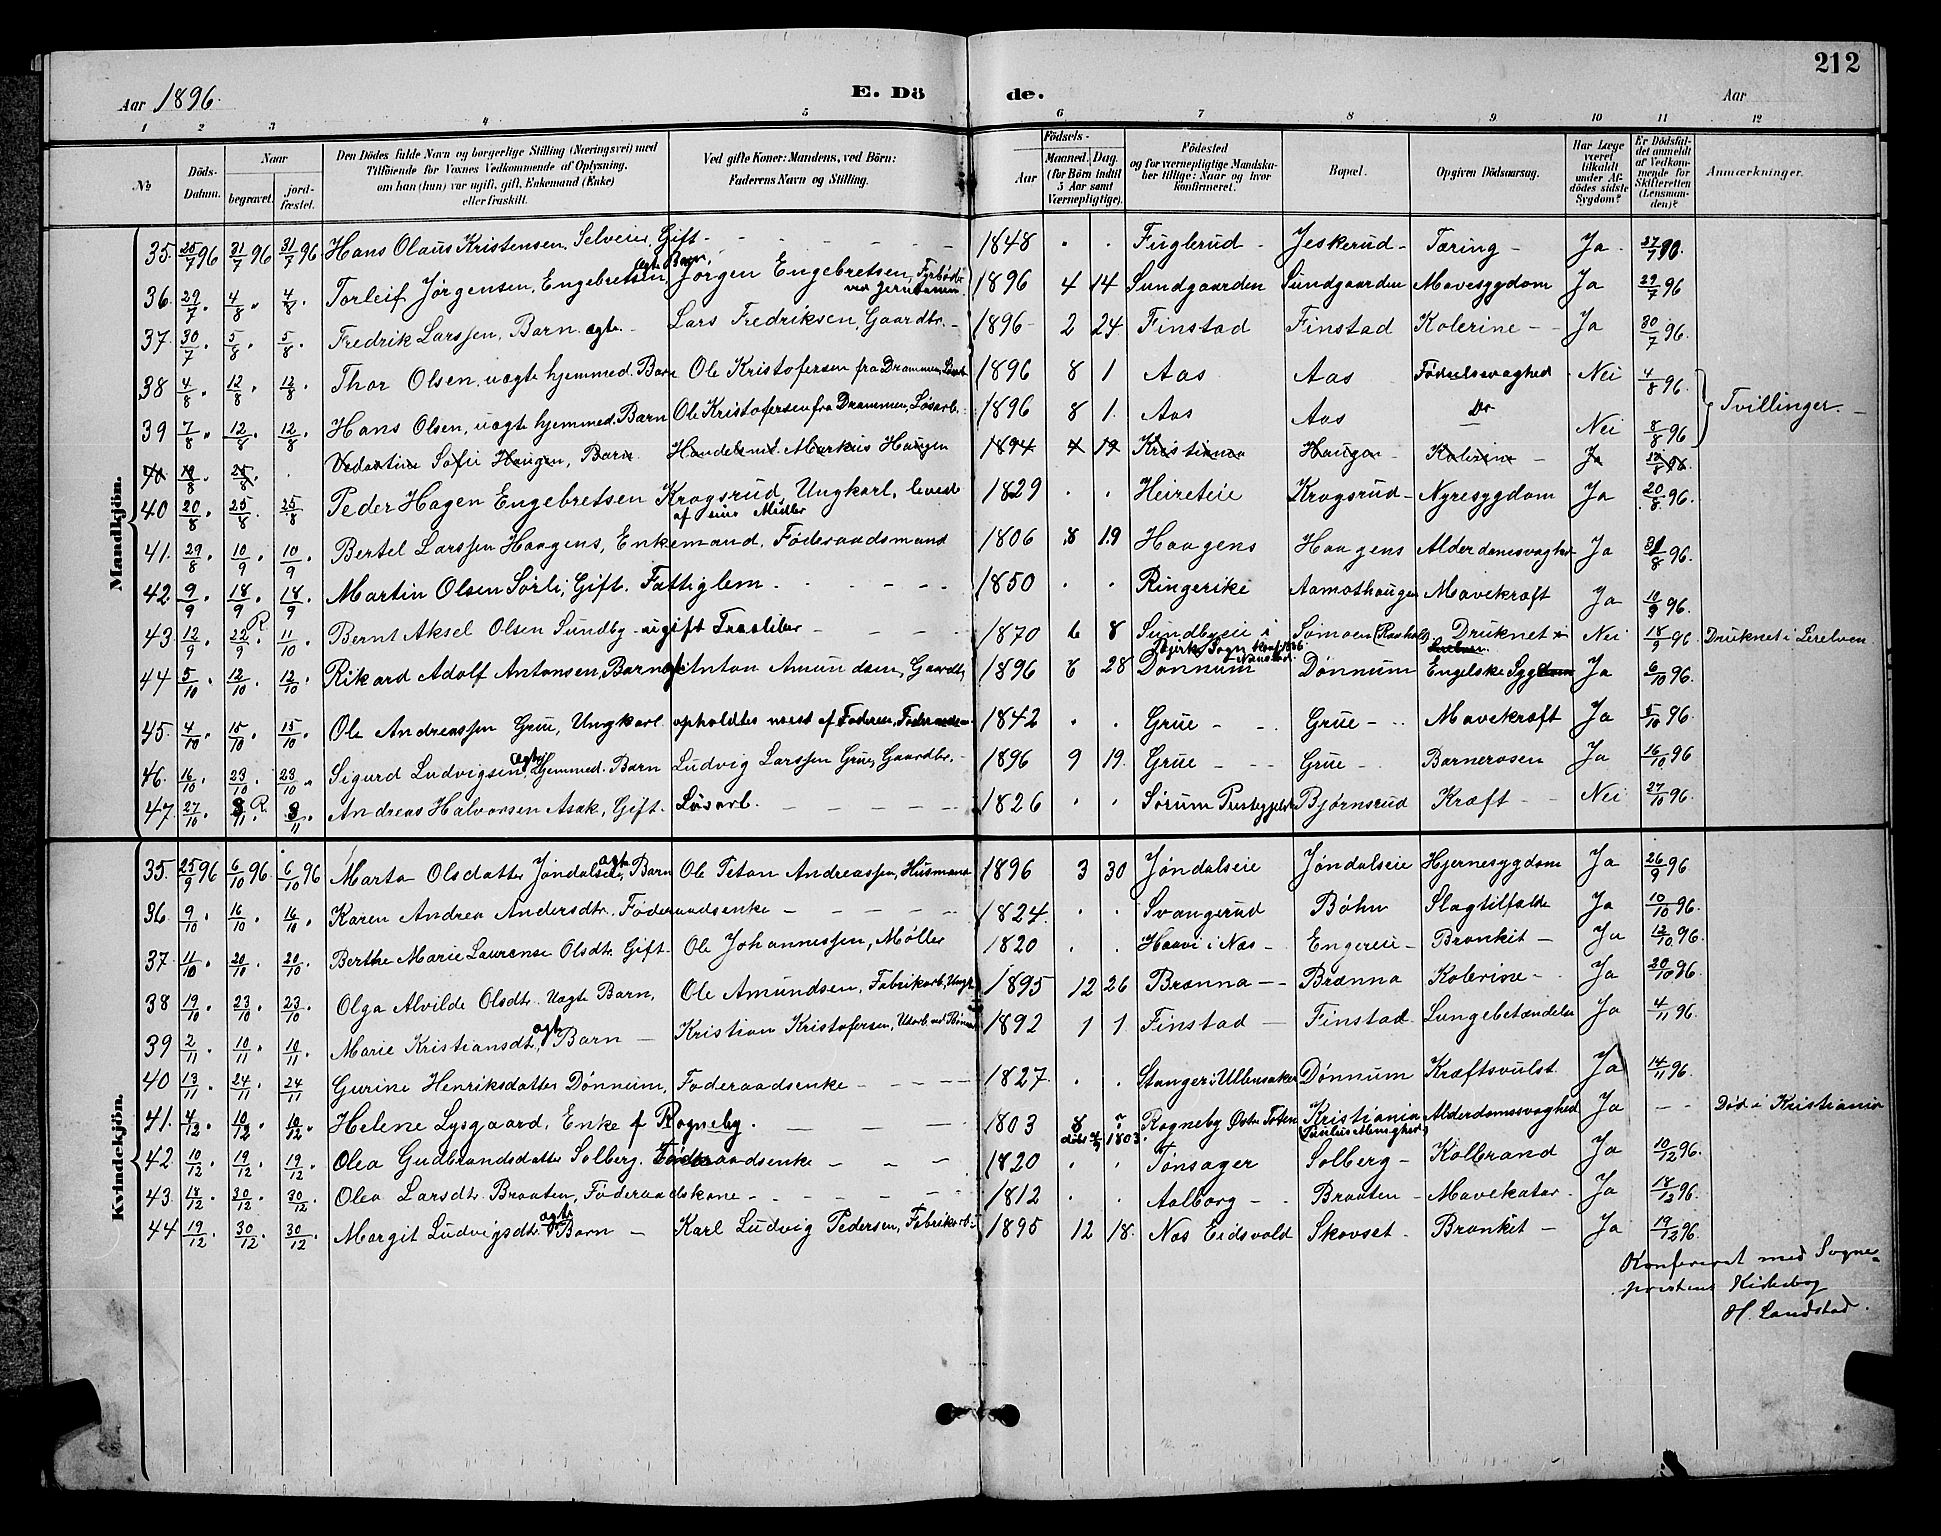 212
Aar 1896. E. Dö de. Aar
1 2 3 4 5 6 7 8 9 10 11 12
№ Döds-Datum. Naar begravet. jord-fæstet. Den Dödes fulde Navn og borgerlige Stilling (Næringsvei) med Tilföiende for Voxnes Vedkommende af Oplysning, om han (hun) var ugift, gift, Enkemand (Enke) eller fraskilt. Ved gifte Koner: Mandens, ved Börn: Faderens Navn og Stilling. Födsels- Aar Maaned. Dag. (for Börn indtil 5 Aar samt Værnepligtige). Födested og for værnepligtige Mandskaber tillige: Naar og hvor konfirmeret. Bopæl. Opgiven Dödsaarsag. Har Læge været tilkaldt under Afdödes sidste Sygdom? Er Dödsfaldet anmeldt af Vedkommende for Skifteretten (Lensmanden)? Anmærkninger.
Mandkjön.
35. 25/7 96 31/7 96 31/7 96 Hans Olaus Kristensen, Selveier, Gift - 1848 . . Fuglerud - Jeskerud - Tæring - Ja - 27/7 96.
36. 29/7 " 4/8 " 4/8 " Torleif Jørgensen, Engebretsen, ægte Barn, Jørgen Engebretsen, 1896 4 14 Sundgaarden Sundgaarden Mavesygdom Ja 29/7 96
37. 30/7 " 5/8 " 5/8 " Fredrik Larssen, Barn ægte - Lars Fredriksen, Gaardbr. - 1896 2 24 Finstad Finstad Kolerine - Ja 30/7 96.
38 4/8 " 12/8 " 12/8 " Thor Olsen, uægte hjemmed. Barn Ole Kristofersen fra Drammen, 1896 8 1 Aas Aas Fødselssvaghed Nei 4/8 96.
39 7/8 " 12/8 " 12/8 " Hans Olsen, uægte hjemmed. Barn Ole Kristofersen fra Drammen, Løsarb. 1896 8 1. Aas Aas Do Nei 8/8 96 Tvillinger.
Sofie Haugen, Barn Handelsmd. Markus Haugen 1894 4 19 Kristiania Haugen Kolerine - Ja
40 20/8 " 25/8 " 25/8 " Peder Hagen Engebretsen Krogsrud, Ungkarl, leved af sine Midler 1829 . . Heireteie Krogsrud - Nyresygdom Ja 20/8 96.
41. 29/8 " 10/9 " 10/9 " Bertel Larssen Haagens, Enkemand, Føderaadsmand 1806 8 19 Haagens Haagens Alderdomssvaghed Ja 31/8 96.
42 9/9 " 18/9 " 18/9 " Martin Olsen Sørli, Gift. Fattiglem. 1850 . . Ringerike Aamothaugen Mavekræft Ja 10/9 96.
43 12/9 " 22/9 R. 11/10 Bernt Aksel Olsen Sundby - ugift Træsliber - 1870 6 8 Sundbyeie i Sømoen (Raaholt) Druknet i Nei 18/9 96 Druknet i Leirelven
44 5/10 " 12/10 " 12/10 " Rikard Adolf Antonsen, Barn af Anton Amundsen, Gaardbr. 1896 6 28 Dønnum Dønnum Engelske Sygdom Ja 6/10 96.
45. 4/10 " 15/10 " 15/10 " Ole Andreassen Grue, Ungkarl opholdtes mest af Faderen, 1842 . . Grue - Grue - Mavekræft Ja 5/10 96.
46. 16/10 " 23/10 " 23/10 " Sigurd Ludvigsen, ægte Hjemmed. Barn Ludvig Larssen Grue, Gaardbr. - 1896 9 19. Grue - Grue - Barnerosen Ja 16/10 96
47. 27/10 " 8/11 R. 8/11 " Andreas Halvorsen Asak, Gift. Løsarb. 1826 . . Sørum Bjørnsrud Kræft - Nei 27/10 96.
Kvindekjön.
35. 25/9 96 6/10 96 6/10 96 Marta Olsdatter Jøndalseie, ægte Barn Ole Peton Andreassen, Husmand 1896 3 30 Jøndalseie Jøndalseie Hjernesygdom Ja 26/9 96
36. 9/10 " 16/10 " 16/10 " Karen Andrea Andersdtr. Føderaadsenke - 1824. . . Svangerud Bøhn Slagtilfælde Ja 10/10 96.
37. 11/10 " 20/10 " 20/10 " Berthe Marie Laurense Olsdtr. Gift Ole Johannessen, Møller 1820 . . Haavi i Næs - Engereie - Bronkit - Ja 12/10 96.
38 19/10 " 23/10 " 23/10 " Olga Alvilde Olsdtr. Uægte Barn, Ole Amundsen, Fabrikarb. Ungk. 1895 12 26 Brænna - Brænna Kolerine - Ja 20/10 96.
39 2/11 " 10/11 " 10/11 " Marie Kristiansdtr. ægte Barn - Kristian Kristofersen, 1892 1 1 Finstad - Finstad Lungebetændelse Ja 4/11 96.
40 13/11 " 24/11 " 24/11 " Gurine Henriksdatter Dønnum, Føderaadsenke - 1827. . . Stanger i Ullensaker Dønnum Kræftsvulst Ja 14/11 96.
41. 4/12 " 10/12 " 10/12 " Helene Lysgaard, Enke af Rogneby. 1803 8 ? Rogneby Østre Toten Kristiania Paulus Menighed Alderdomssvaghed Ja - - Død i Kristiania
42. 10/12 " 19/12 " 19/12 " Olea Gudbrandsdatter Solberg. Føderaadsenke - 1820 . . Tønsager Solberg - Kolbrand Ja 10/12 96.
43 18/12 " 30/12 " 30/12 " Olea Larsdtr. Braaten, Føderaadskone - 1812 . . Aalborg - Braaten - Mavekatar. Ja 18/12 96.
44 19/12 " 30/12 " 30/12 " Margit Ludvigsdtr. ægte Barn - Karl Ludvig Pedersen, Fabrikarb. 1895 12 18. Næs Eidsvold Skovset - Bronkit - Ja 19/12 96.
Konfereret med Sogne-
prestens Kirkebog
H. Landstad.